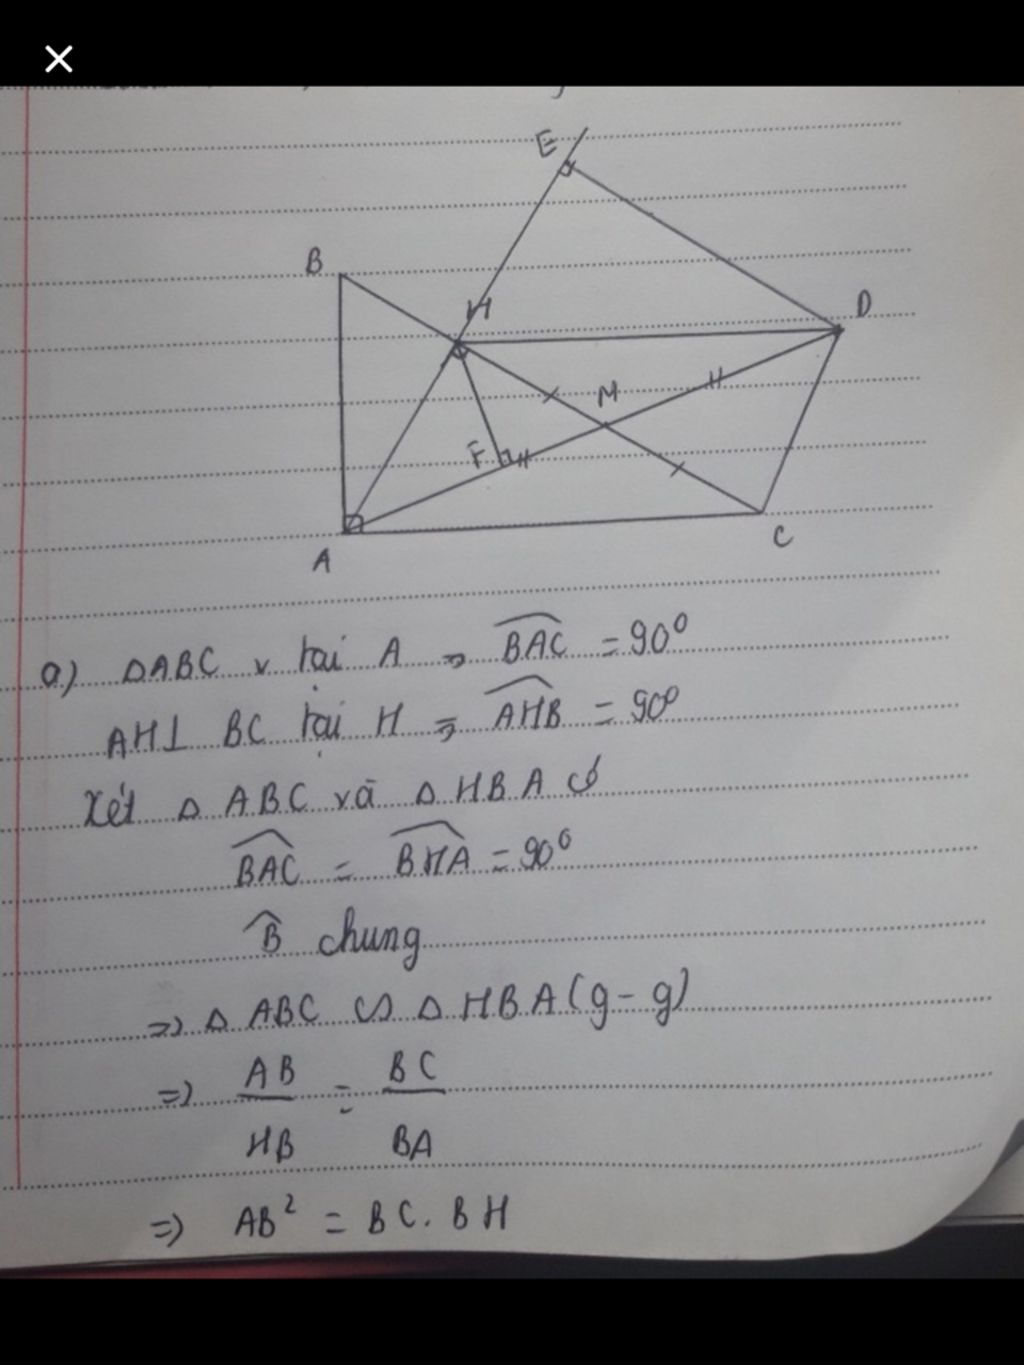 E
B
H
D
M
F
A
C
a) ΔABC v tại A => \widehat{BAC} = 90⁰
AH⊥ BC tại H => \widehat{AHB} = 90⁰
Xét Δ ABC và Δ HBA có
\widehat{BAC} = \widehat{BHA} = 90⁰
\widehat{B} chung
=> Δ ABC ∽ Δ HBA (g-g)
=> AB/HB = BC/BA
=> AB² = BC. BH